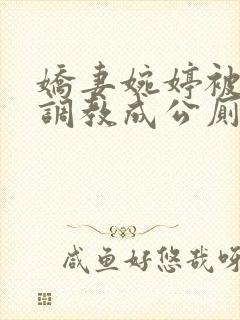 嬌妻婉婷被
調教成公廁
咸鱼好悠哉呀